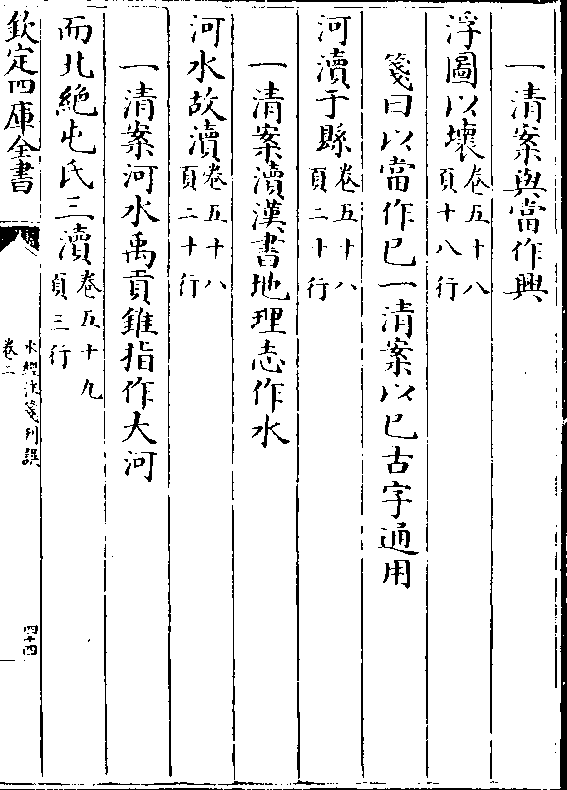 一清案與當作興
浮圖以壞卷五十八頁十八行
箋曰以當作已一清案以已古字通用
河瀆于縣卷五十八頁二十行
一清案瀆漢書地理志作水
河水故瀆卷五十八頁二十行
一清案河水禹貢錐指作大河
而北絶屯氏三瀆卷五十九頁三行
欽定四庫全書
水經注箋刋誤
卷二
四十四